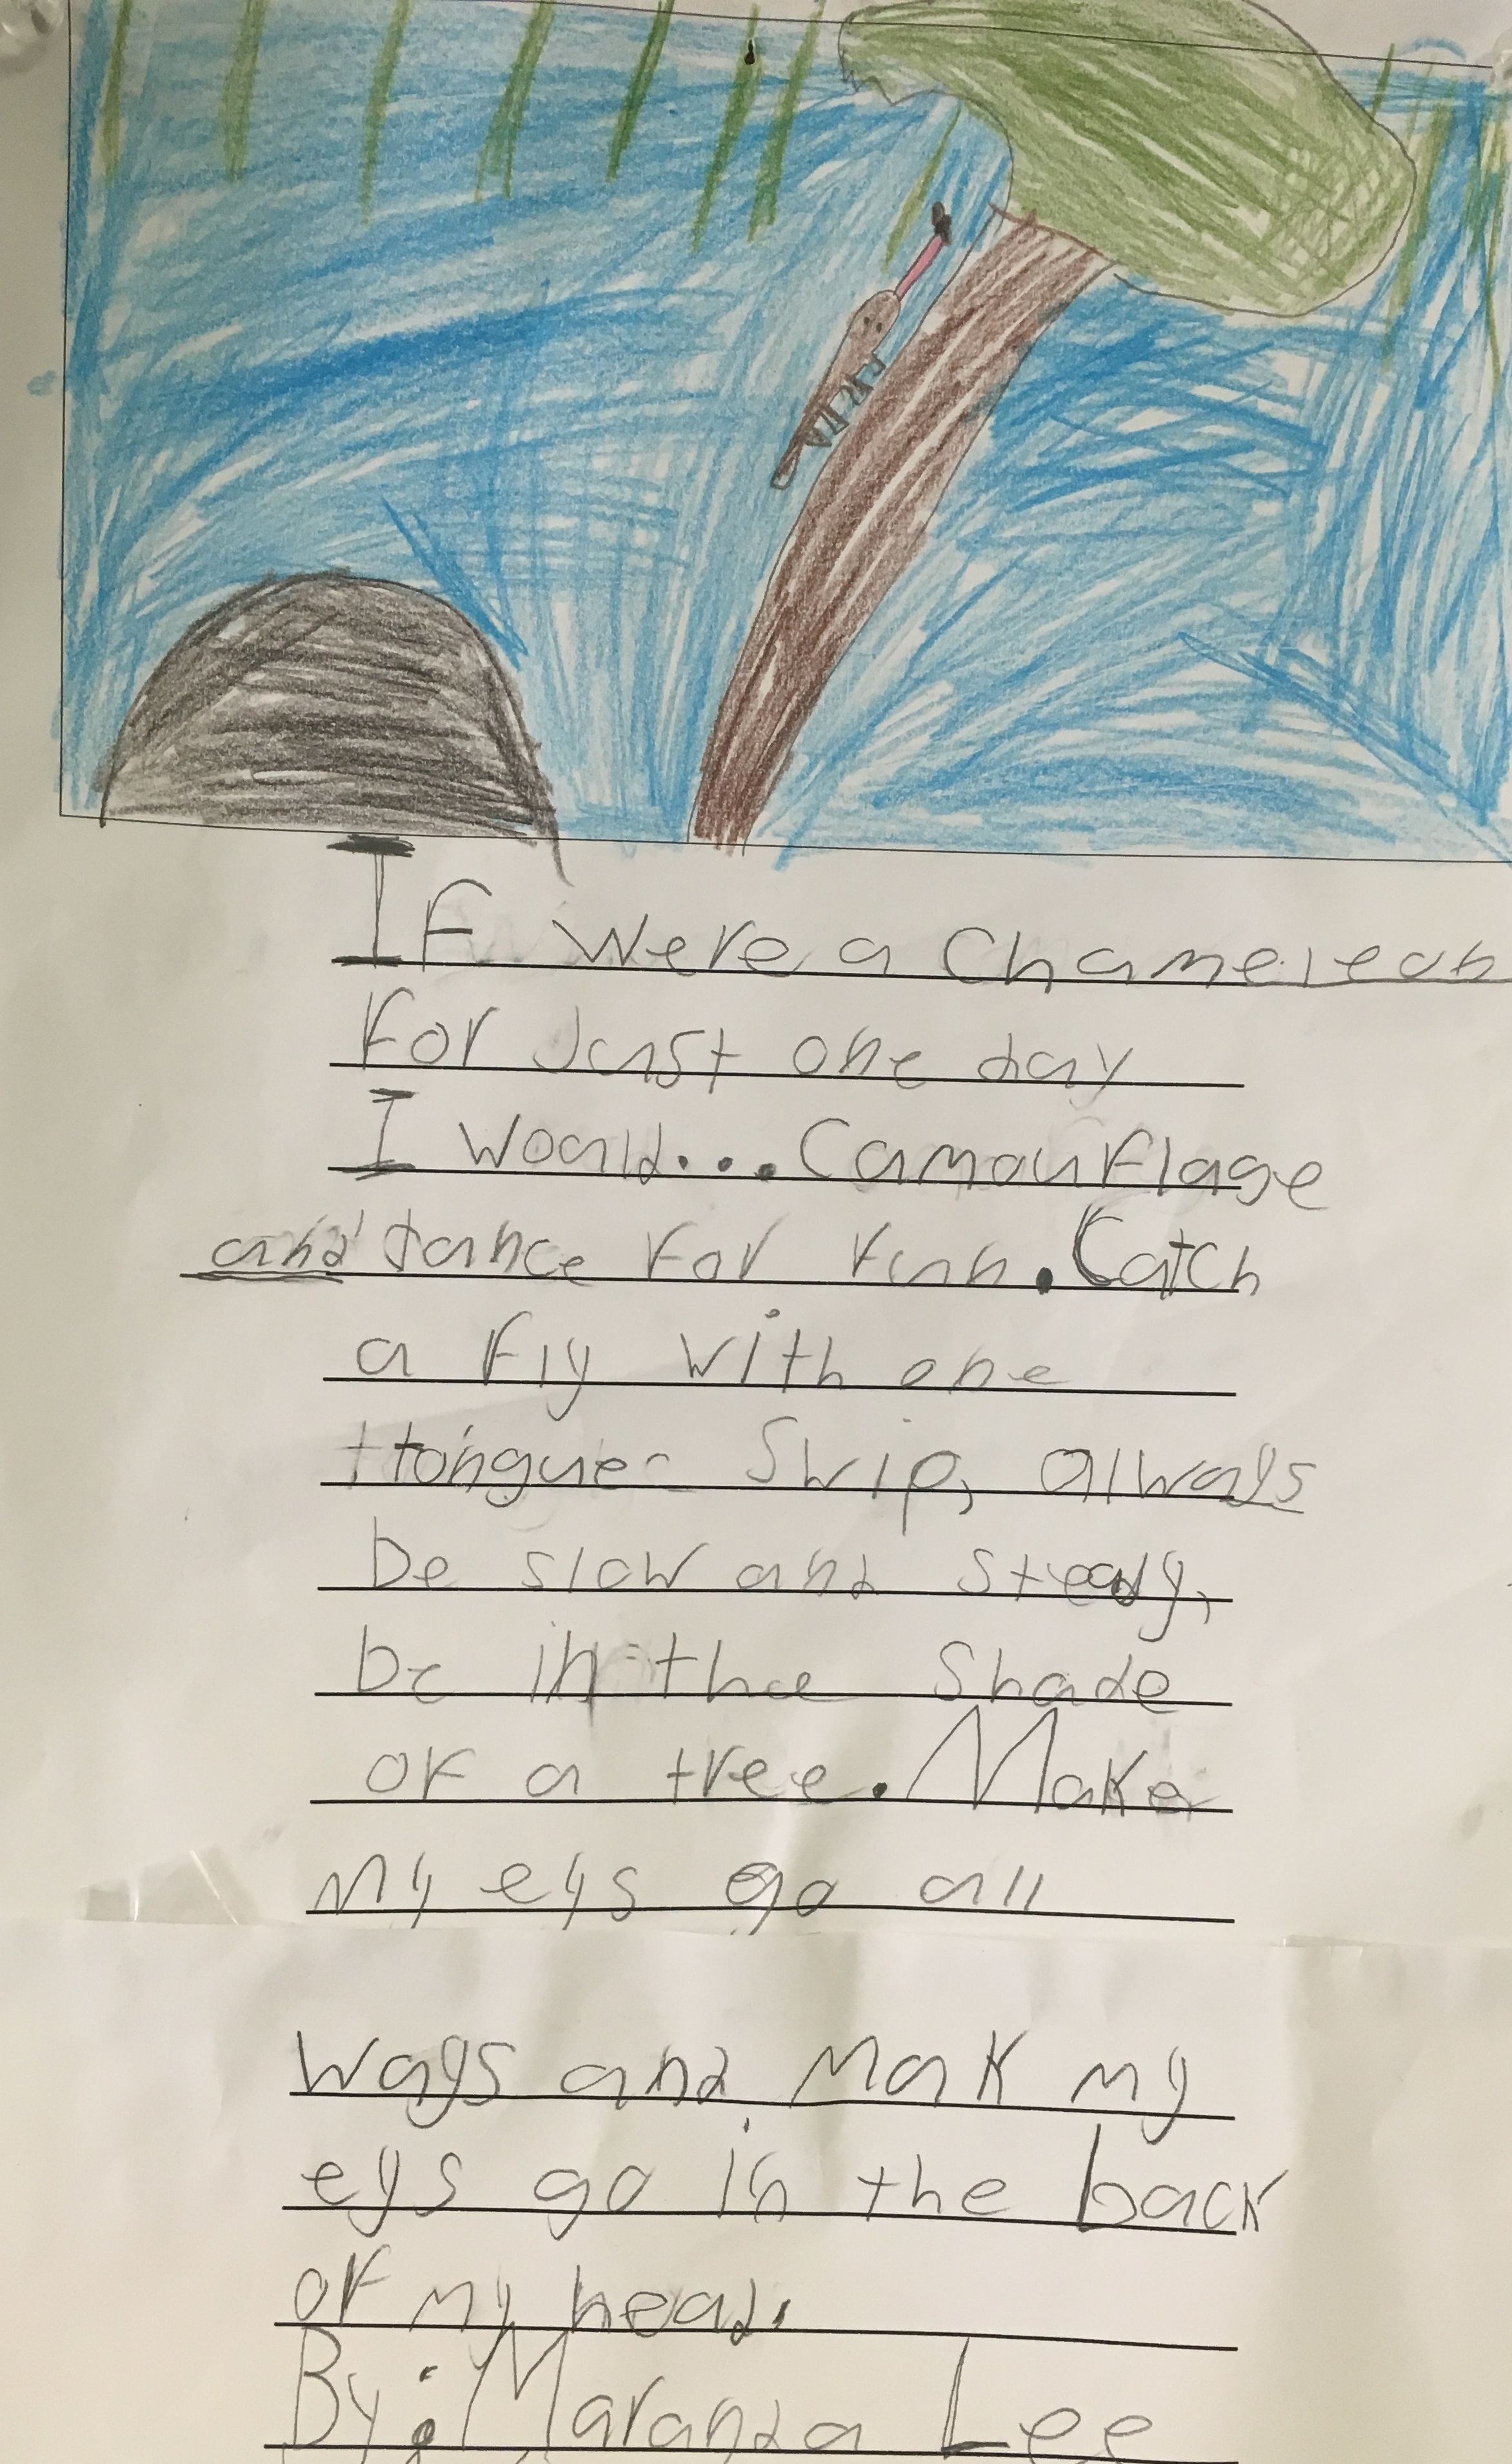 If were a Chameleon
For Just one day
I would... Camouflage
and dance For Fun. Catch
a Fly with one
ttongue Swip, always
be slow and steady,
be in the Shade
of a tree. Make
my eys go all
ways and Mak my
eys go in the back
of my head.
By: Maranda Lee